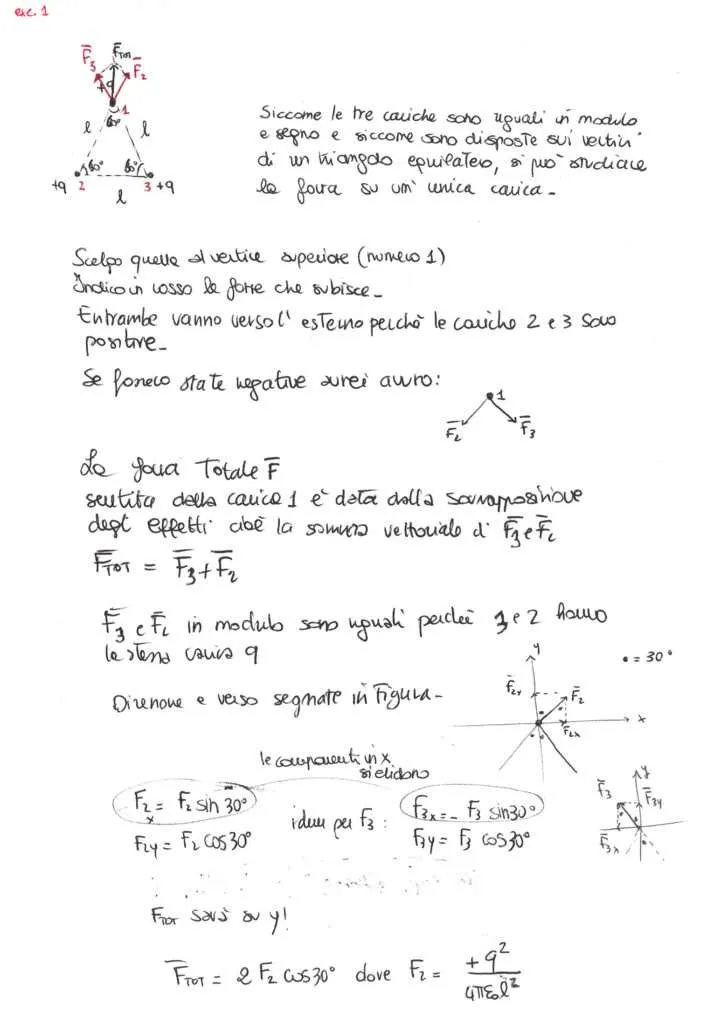 exe. 1
F̅TOT
F̅3 F̅2
+q
1
60°
l l
60° 60°
+q 2 3 +q
l
Siccome le tre cariche sono uguali in modulo
e segno e siccome sono disposte sui vertici
di un triangolo equilatero, si può studiare
la forza su un' unica carica -
Scelgo quella al vertice superiore (numero 1)
Indico in rosso le forze che subisce -
Entrambe vanno verso l' esterno perchè le cariche 2 e 3 sono
positive -
Se fossero state negative avrei avuto:
1
F̅2 F̅3
La forza Totale F̅
sentita dalla carica 1 è data dalla sovrapposizione
degli effetti cioè la somma vettoriale di F̅3 e F̅2
F̅TOT = F̅3 + F̅2
F̅3 e F̅2 in modulo sono uguali perchè 3 e 2 hanno
la stessa carica q
y
• = 30°
F̅2y F̅2
Direzione e verso segnate in Figura -
x
F̅2x
le componenti in x
si elidono
F2x = F2 sin 30° idem per F3 : F3x = - F3 sin 30°
F2y = F2 cos 30° F3y = F3 cos 30°
y
F̅3 F̅3y
F̅3x
FTOT sarà su y!
F̅TOT = 2 F2 cos 30° dove F2 = +q² / 4πε0 l²